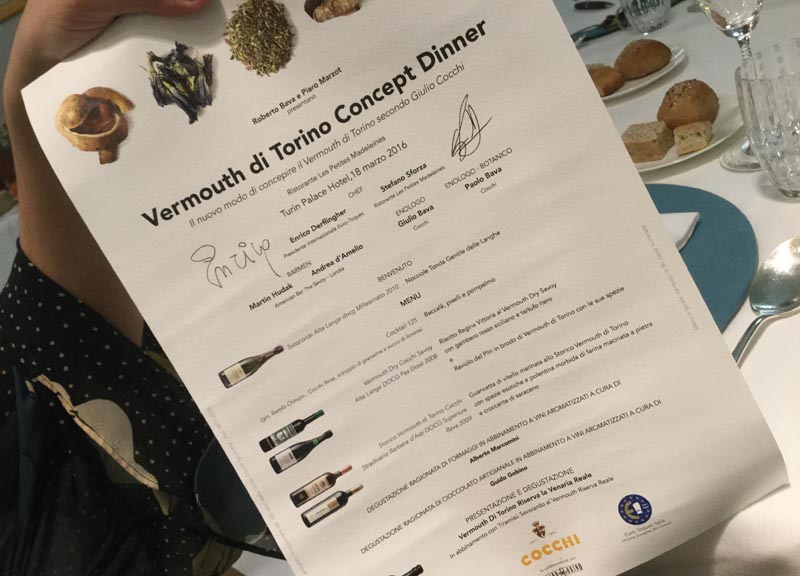 Roberto Bava e Piero Marzot
presentano
Vermouth di Torino Concept Dinner
Il nuovo modo di concepire il Vermouth di Torino secondo Giulio Cocchi
Ristorante Les Petites Madeleines
Turin Palace Hotel, 18 marzo 2016
CHEF
Enrico Derflingher
Presidente internazionale Euro-Toques
Stefano Sforza
Ristorante Les Petites Madeleines
Enrico
BARMEN
Martin Hudak
Andrea d'Amelio
American Bar The Savoy - Londra
ENOLOGO
Giulio Bava
Cocchi
ENOLOGO - BOTANICO
Paolo Bava
Cocchi
BENVENUTO
Totocorde Alta Langa docg Millesimato 2010
Nocciole Tonda Gentile delle Langhe
MENU
Cocktail 125
Baccalà, piselli e pompelmo
Vermouth Dry Cocchi Savoy
Alta Langa DOCG Pas Dosé 2008
Risotto Regina Vittoria al Vermouth Dry Savoy
con gambero rosso siciliano e tartufo nero
e
Raviolo del Plin in brodo di Vermouth di Torino con le sue spezie
Storico Vermouth di Torino Cocchi
Stradivario Barbera d'Asti DOCG Superiore
Bava 2009
Guancetta di vitello marinata allo Storico Vermouth di Torino
con spezie esotiche e polentina morbida di farina macinata a pietra
e croccante di saraceno
DEGUSTAZIONE RAGIONATA DI FORMAGGI IN ABBINAMENTO A VINI AROMATIZZATI A CURA DI
Alberto Marcomini
DEGUSTAZIONE RAGIONATA DI CIOCCOLATO ARTIGIANALE IN ABBINAMENTO A VINI AROMATIZZATI A CURA DI
Guido Gobino
PRESENTAZIONE E DEGUSTAZIONE
Vermouth Di Torino Riserva la Venaria Reale
in abbinamento con Tiramisù Savoiardo al Vermouth Riserva Reale
COCCHI
Euro Toques Italia